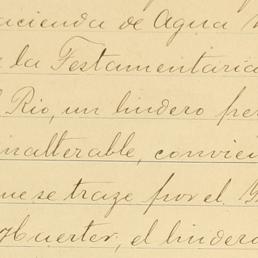 acienda de Agua
la Testamentaria
l Rio, un lindero per
inalterable, convi
ue se traze por el
Huerter, el lindero